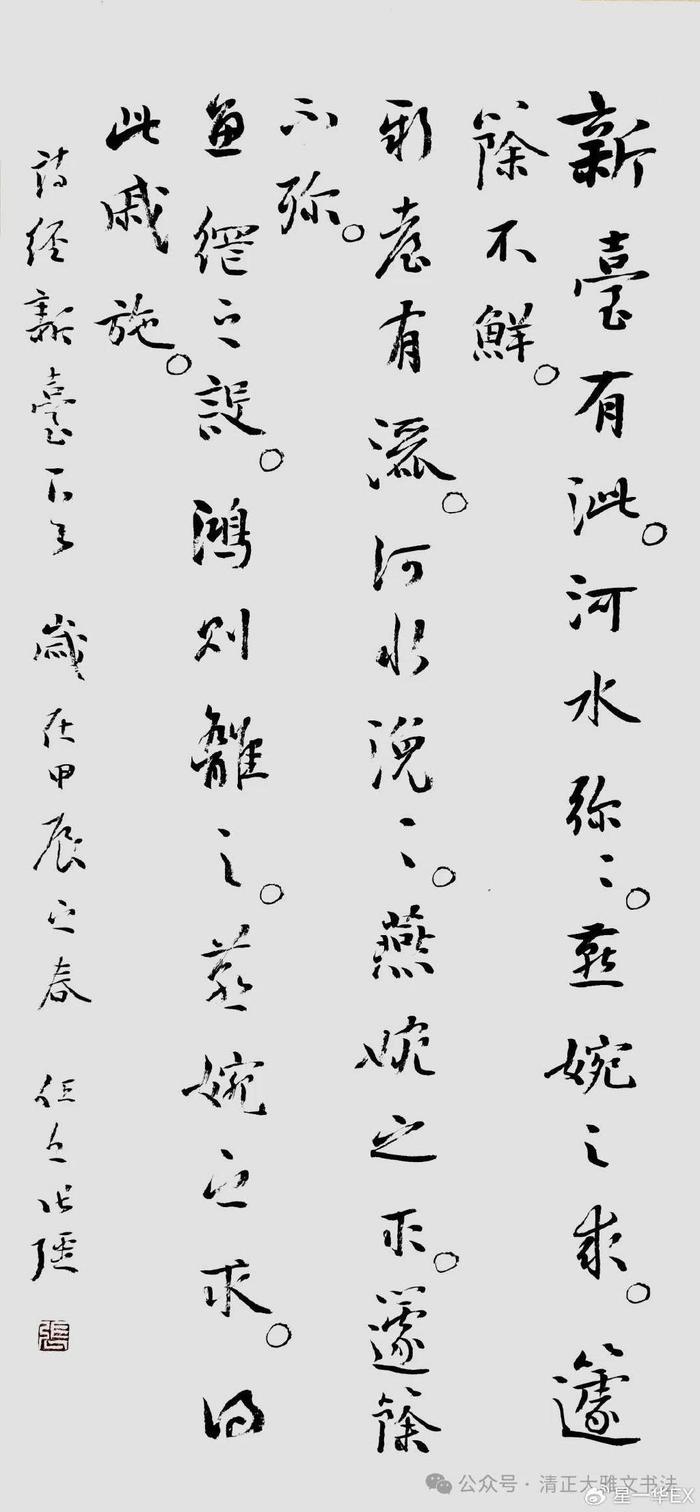 新臺有泚。河水弥〻。燕婉之求。籧
篨不鮮。
新臺有。河水浼〻。燕婉之求。籧篨
不殄。
魚網之設。鴻則離之。燕婉之求。得
此戚施。
詩經新臺 歲在甲辰之春 任丘張
張
公众号·清正大雅文书法
星一华EX